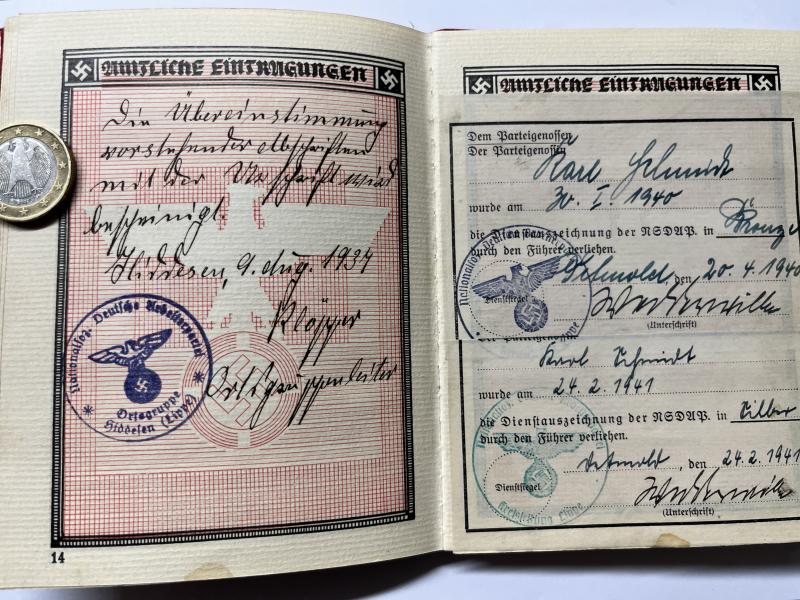 AMTLICHE EINTRAGUNGEN
Die Übereinstimmung
vorstehender Abschriften
mit der Urschrift wird
bescheinigt.
Hiddesen, 9. Aug. 1937
Klöpper
Ortsgruppenleiter
Nationalsoz. Deutsche Arbeiterpartei
Ortsgruppe
Hiddesen (Lippe)
14
AMTLICHE EINTRAGUNGEN
Dem Parteigenossen
Der Parteigenossin
Karl Schmidt
wurde am 30. I. 1940
die Dienstauszeichnung der NSDAP. in Bronze
durch den Führer verliehen.
Detmold, den 20. 4. 1940
Dienstsiegel
(Unterschrift)
Karl Schmidt
wurde am 24. 2. 1941
die Dienstauszeichnung der NSDAP. in Silber
durch den Führer verliehen.
Detmold, den 24. 2. 1941
Dienstsiegel
(Unterschrift)